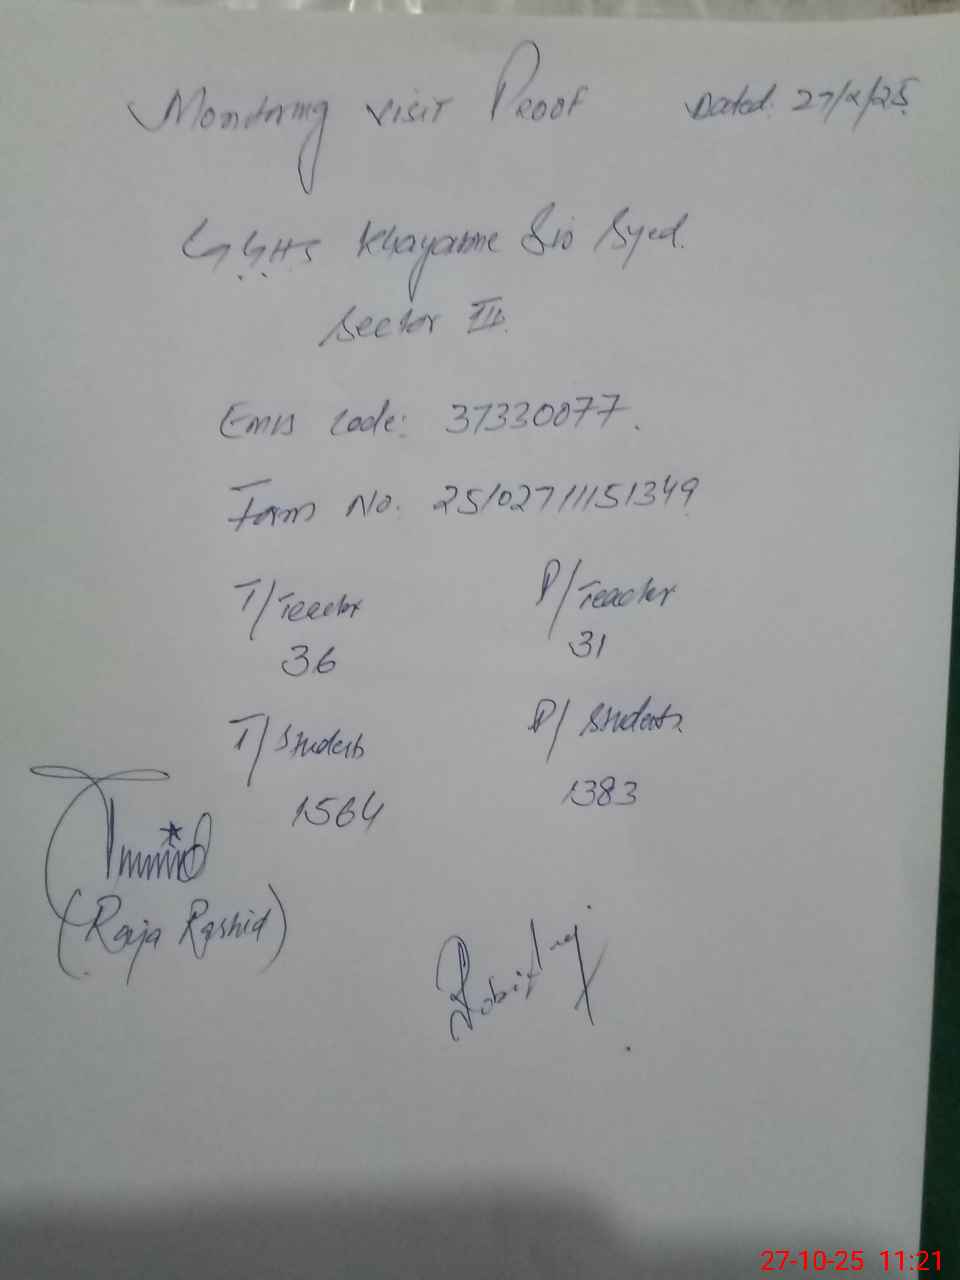 Monitoring visit Proof Dated: 27/X/25
GGHS Khayabane Sir Syed.
Sector III.
Emis Code: 37330077.
Form No. 251027111151349
T/Teacher P/Teacher
36 31
T/Students P/Students
1564 1383
(Raja Rashid)
27-10-25 11:21